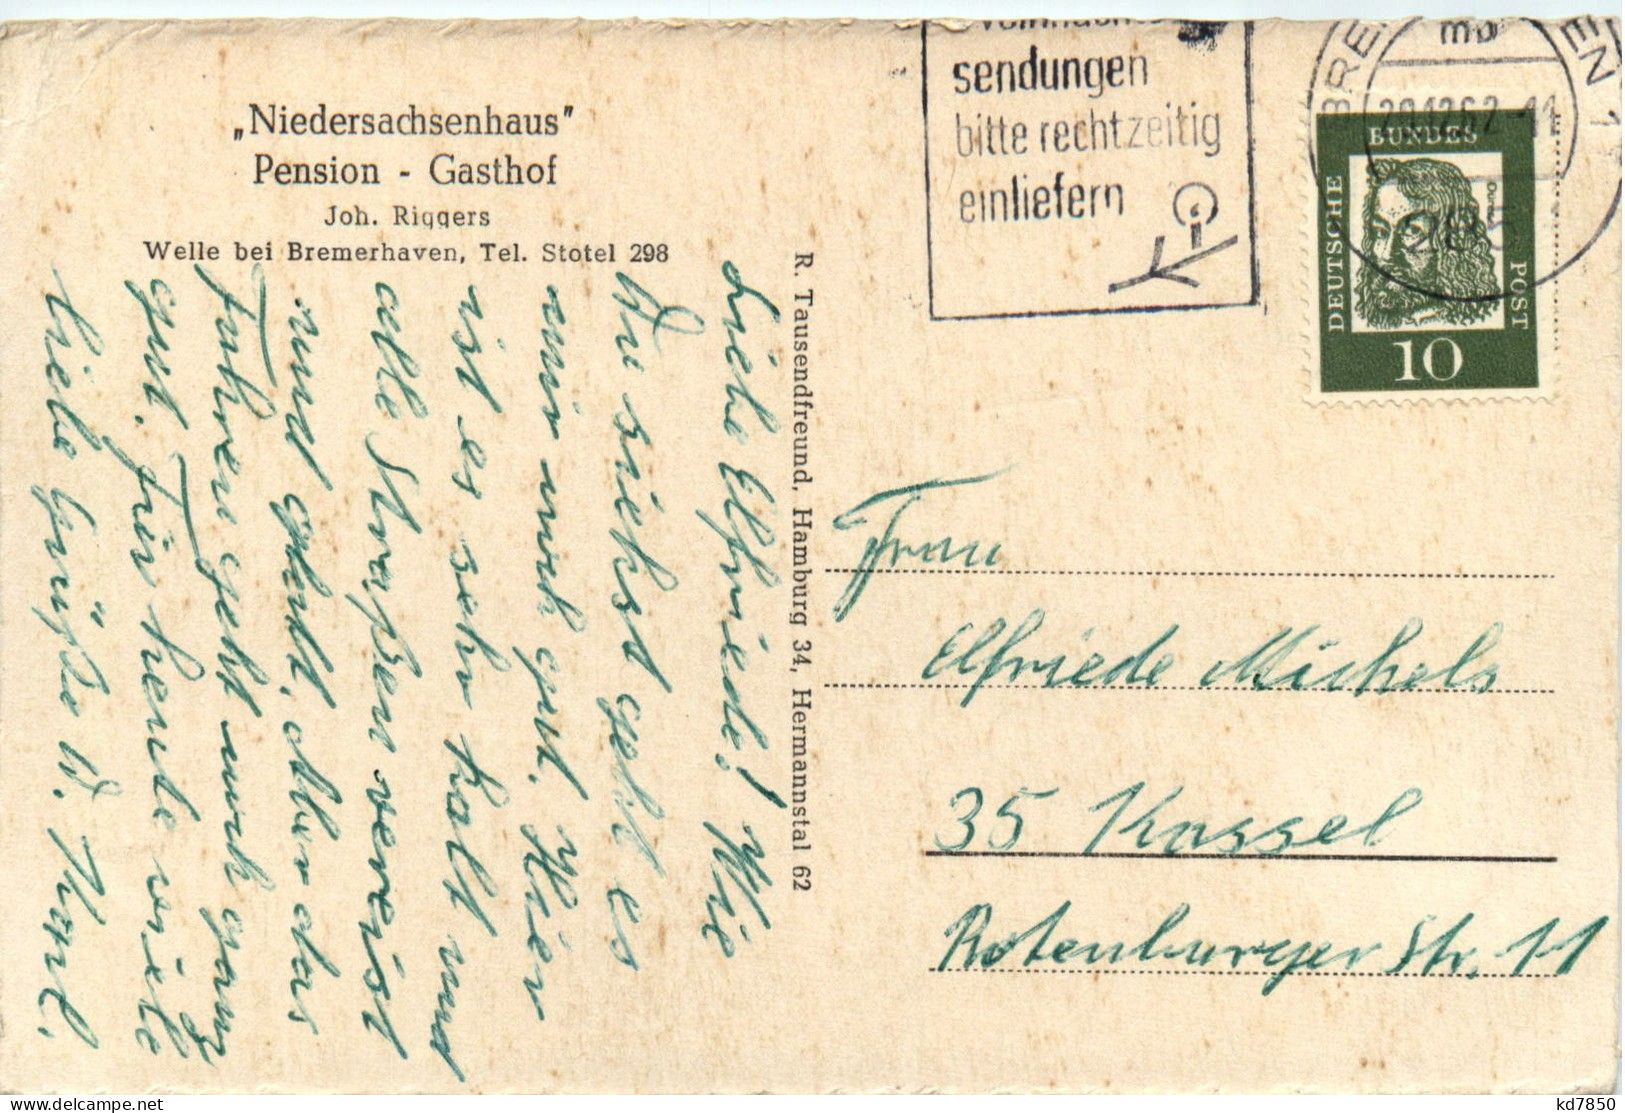 „Niedersachsenhaus"
Pension - Gasthof
Joh. Riggers
Welle bei Bremerhaven, Tel. Stotel 298
Liebe Elfriede! Wie
Du siehst geht es
mir noch gut. Hier
ist es sehr kalt und
alle Straßen vereist
und glatt. Aber das
Fahren geht noch ganz
gut. Für heute viele
liebe Grüße W. Karl.
R. Tausendfreund, Hamburg 34, Hermannstal 62
sendungen
bitte rechtzeitig
einliefern
mb
20.12.62-11
285
DEUTSCHE
BUNDES
POST
10
Frau
Elfriede Michels
35 Kassel
Rotenburger Str. 11
kd7850